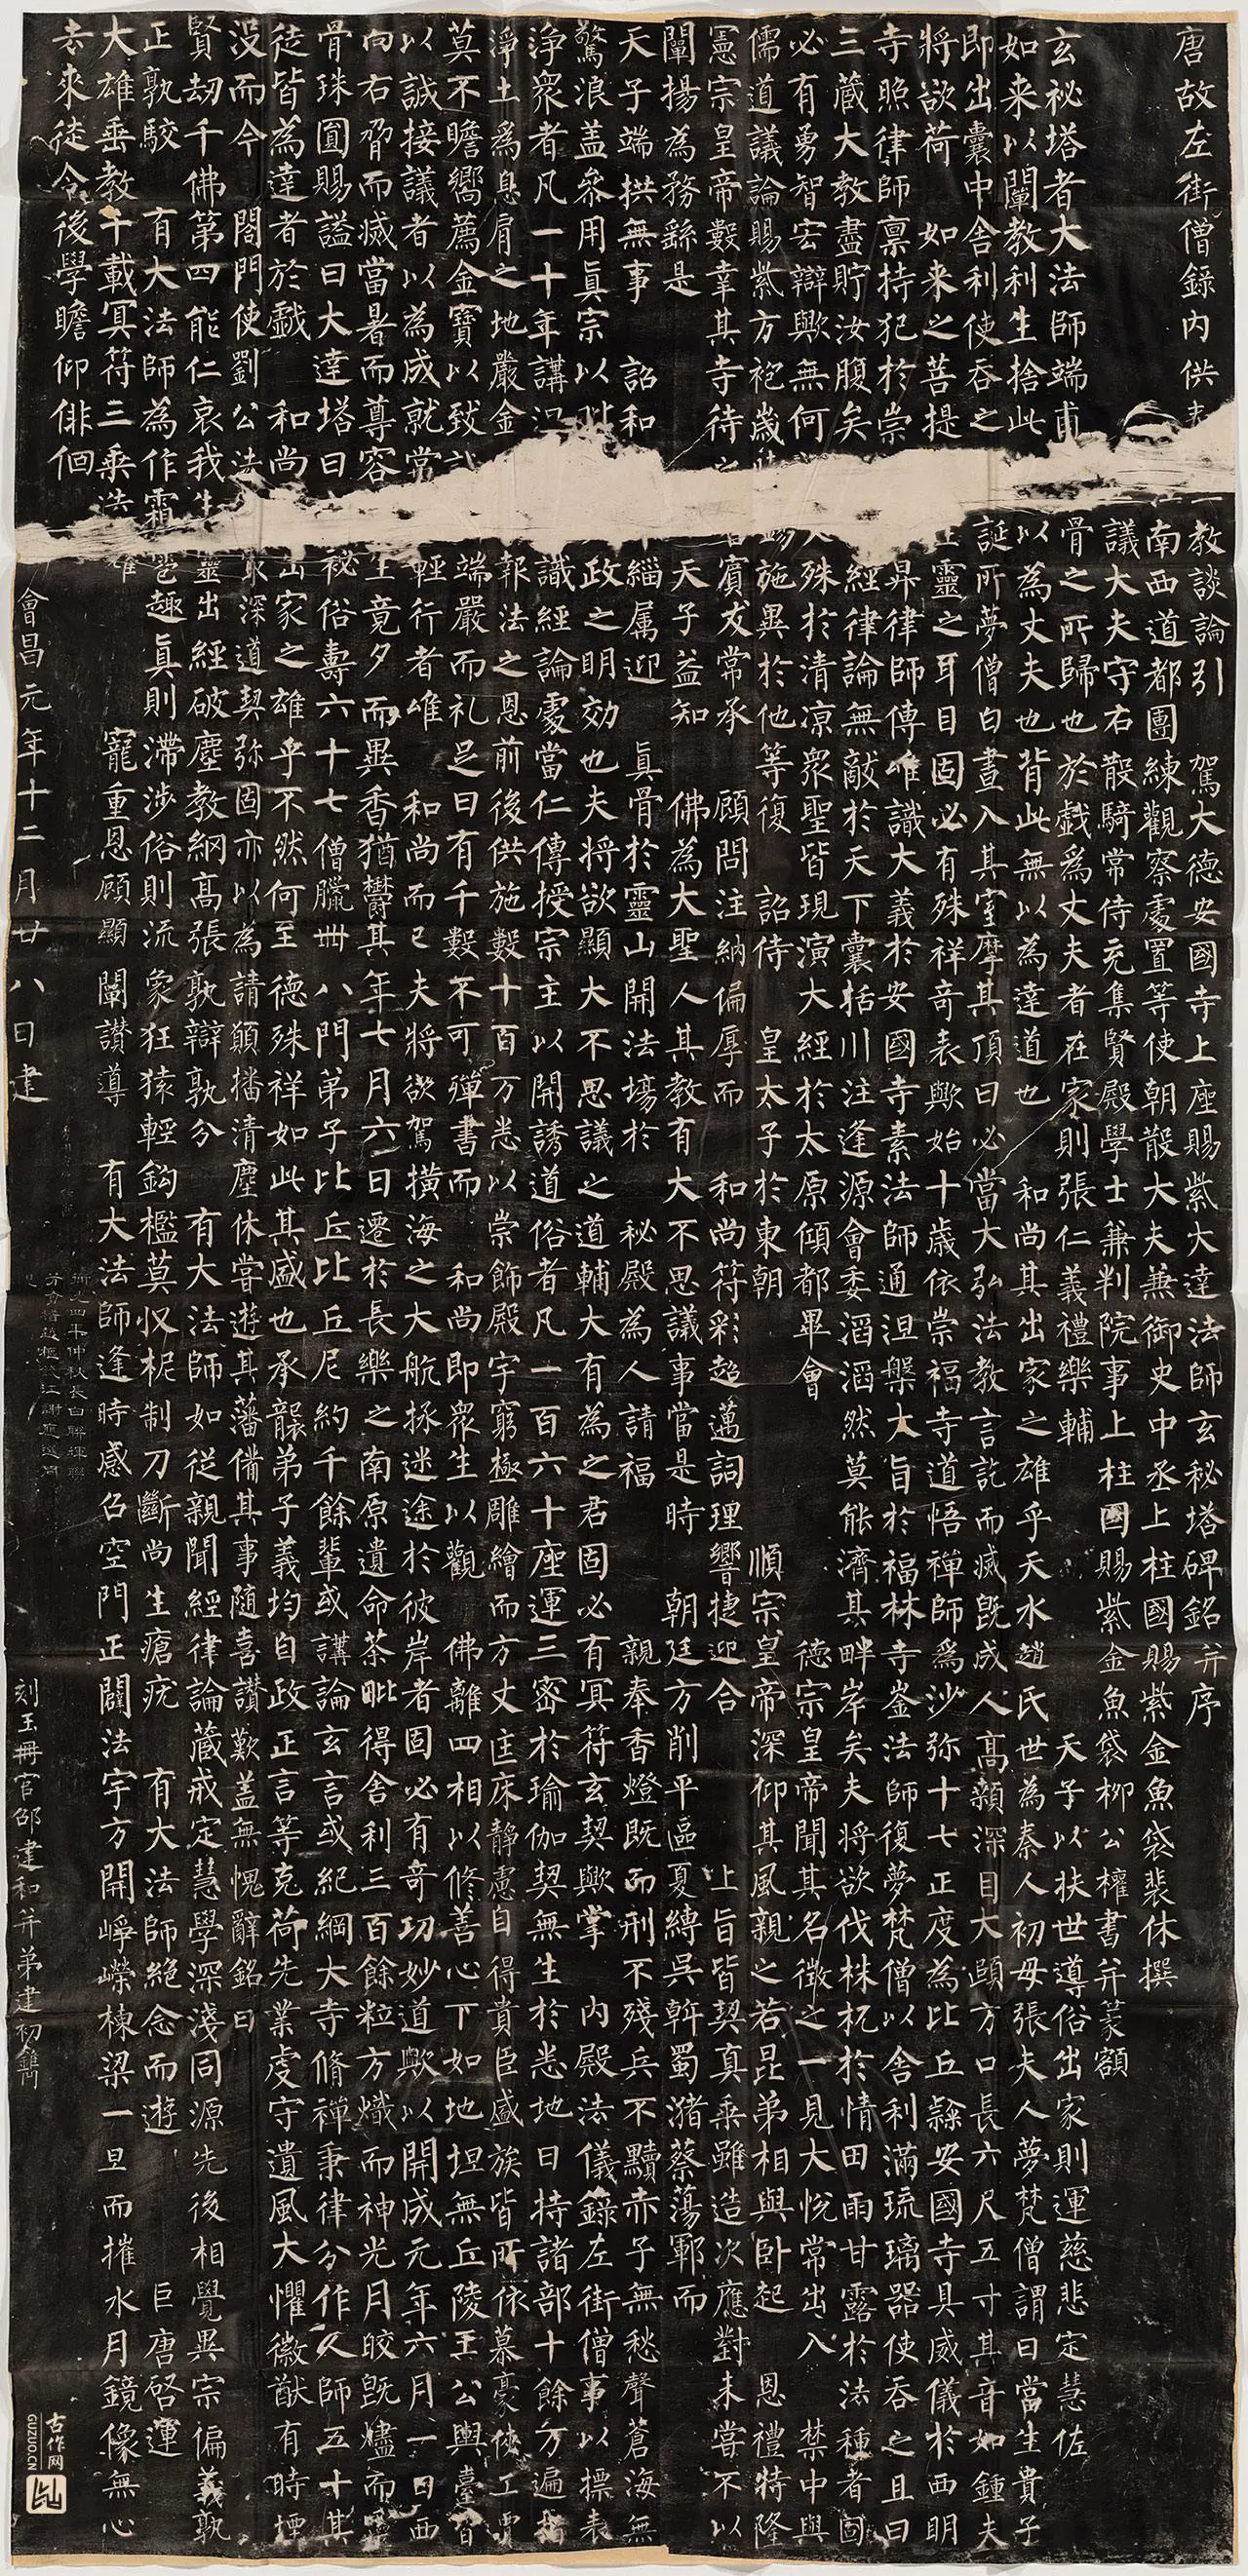 唐故左街僧錄內供
教談論引 駕大德安國寺上座賜紫大達法師玄秘塔碑銘并序
南西道都團練觀察處置等使朝散大夫兼御史中丞上柱國賜紫金魚袋裴休撰
議大夫守右散騎常侍充集賢殿學士兼判院事上柱國賜紫金魚袋柳公權書并篆額
玄祕塔者大法師端甫 骨之所歸也於戲為丈夫者在家則張仁義禮樂輔 天子以扶世導俗出家則運慈悲定慧佐
如来以闡教利生捨此 以為丈夫也背此無以為達道也 和尚其出家之雄乎天水趙氏世為秦人初母張夫人夢梵僧謂曰當生貴子
即出囊中舍利使吞之 誕所夢僧白晝入其室摩其頂曰必當大弘法教言訖而滅既成人高顙深目大頤方口長六尺五寸其音如鍾夫
將欲荷 如来之菩提 靈之耳目固必有殊祥奇表歟始十歲依崇福寺道悟禪師為沙弥十七正度為比丘隸安國寺具威儀於西明
寺照律師禀持犯於崇 昇律師傳唯識大義於安國寺素法師通涅槃大旨於福林寺崟法師復夢梵僧以舍利滿琉璃器使吞之且曰
三藏大教盡貯汝腹矣 經律論無敵於天下囊括川注逢源會委滔滔然莫能濟其畔岸矣夫將欲伐株杌於情田雨甘露於法種者固
必有勇智宏辯歟無何 殊於清涼衆聖皆現演大經於太原傾都畢會 德宗皇帝聞其名徵之一見大悅常出入 禁中與
儒道議論賜紫方袍歲 施異於他等復 詔侍 皇太子於東朝 順宗皇帝深仰其風親之若昆弟相與卧起 恩禮特隆
憲宗皇帝數幸其寺待 賓友常承 顧問注納偏厚而 和尚符彩超邁詞理響捷迎合 上旨皆契真乘雖造次應對未嘗不以
闡揚為務繇是 天子益知 佛為大聖人其教有大不思議事當是時 朝廷方削平區夏縛吳斡蜀瀦蔡蕩鄆而
天子端拱無事 詔和 緇属迎 真骨於靈山開法場於 秘殿為人請福 親奉香燈既而刑不殘兵不黷赤子無愁聲蒼海無
驚浪盖參用真宗以 政之明効也夫將欲顯大不思議之道輔大有為之君固必有冥符玄契歟掌 內殿法儀錄左街僧事以摽表
淨衆者凡一十年講 識經論處當仁傳授宗主以開誘道俗者凡一百六十座運三密於瑜伽契無生於悉地日持諸部十餘万遍指
淨土為息肩之地嚴金 報法之恩前後供施數十百万悉以崇飾殿宇窮極雕繪而方丈匡床靜慮自得貴臣盛族皆所依慕豪俠工賈
莫不瞻嚮薦金寶以致 端嚴而礼足日有千數不可殫書而 和尚即衆生以觀 佛離四相以修善心下如地坦無丘陵王公輿臺皆
以誠接議者以為成就常 輕行者唯 和尚而已夫將欲駕橫海之大航拯迷途於彼岸者固必有奇功妙道歟以開成元年六月一日西
向右脅而滅當暑而尊容 生竟夕而異香猶鬱其年七月六日遷於長樂之南原遺命荼毗得舍利三百餘粒方熾而神光月皎既燼而靈
骨珠圓賜謚曰大達塔曰 秘俗壽六十七僧臘卌八門弟子比丘比丘尼約千餘輩或講論玄言或紀綱大寺脩禪秉律分作人師五十其
徒皆為達者於戲 和尚 出家之雄乎不然何至德殊祥如此其盛也承襲弟子義均自政正言等克荷先業虔守遺風大懼徽猷有時堙
没而今 閤門使劉 公法 深道契弥固亦以為請願播清塵休嘗遊其藩備其事隨喜讚歎盖無愧辭銘曰
賢劫千佛第四能仁哀我生 靈出經破塵教網高張孰辯孰分 有大法師如從親聞經律論藏戒定慧學深淺同源先後相覺異宗偏義孰
正孰駮 有大法師為作霜雹趣真則滯涉俗則流象狂猿輕鈎檻莫収柅制刀斷尚生瘡疣 有大法師絶念而遊 巨唐啓運
大雄垂教千載冥符三乘迭 寵重恩顧顯闡讚導 有大法師逢時感召空門正闢法宇方開崢嶸棟梁一旦而摧水月鏡像無心
去來徒令後學瞻仰俳佪
會昌元年十二月廿八日建
刻玉冊官邵建和并弟建初鐫
古作网
GUZUO.CN